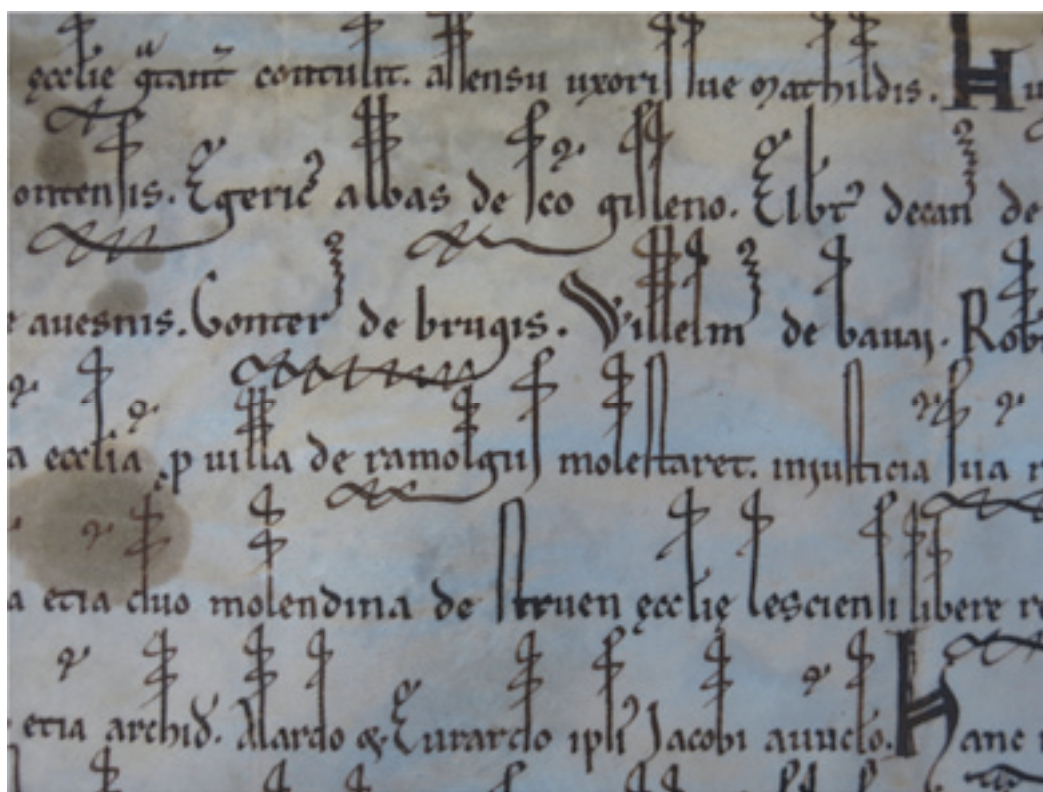 ęcclie gͣtant̄ contulit. assensu uxoris sue Mathildis. Hu
ontensis. Egeric̾ abbas de sc̄o gisleno. Elbt̾ decan̾ de
e auesnis. Gonter̾ de brugis. Willelm̾ de bauai. Rob
a ecclīa ꝓ uilla de ramolgijs molestaret. iniusticia sua r
a etiā duo molendina de struen ęcclię lesciensi libere re
etiā archid̾. Alardo & Eurardo ipsi̾ Jacobi auūclo. Hanc